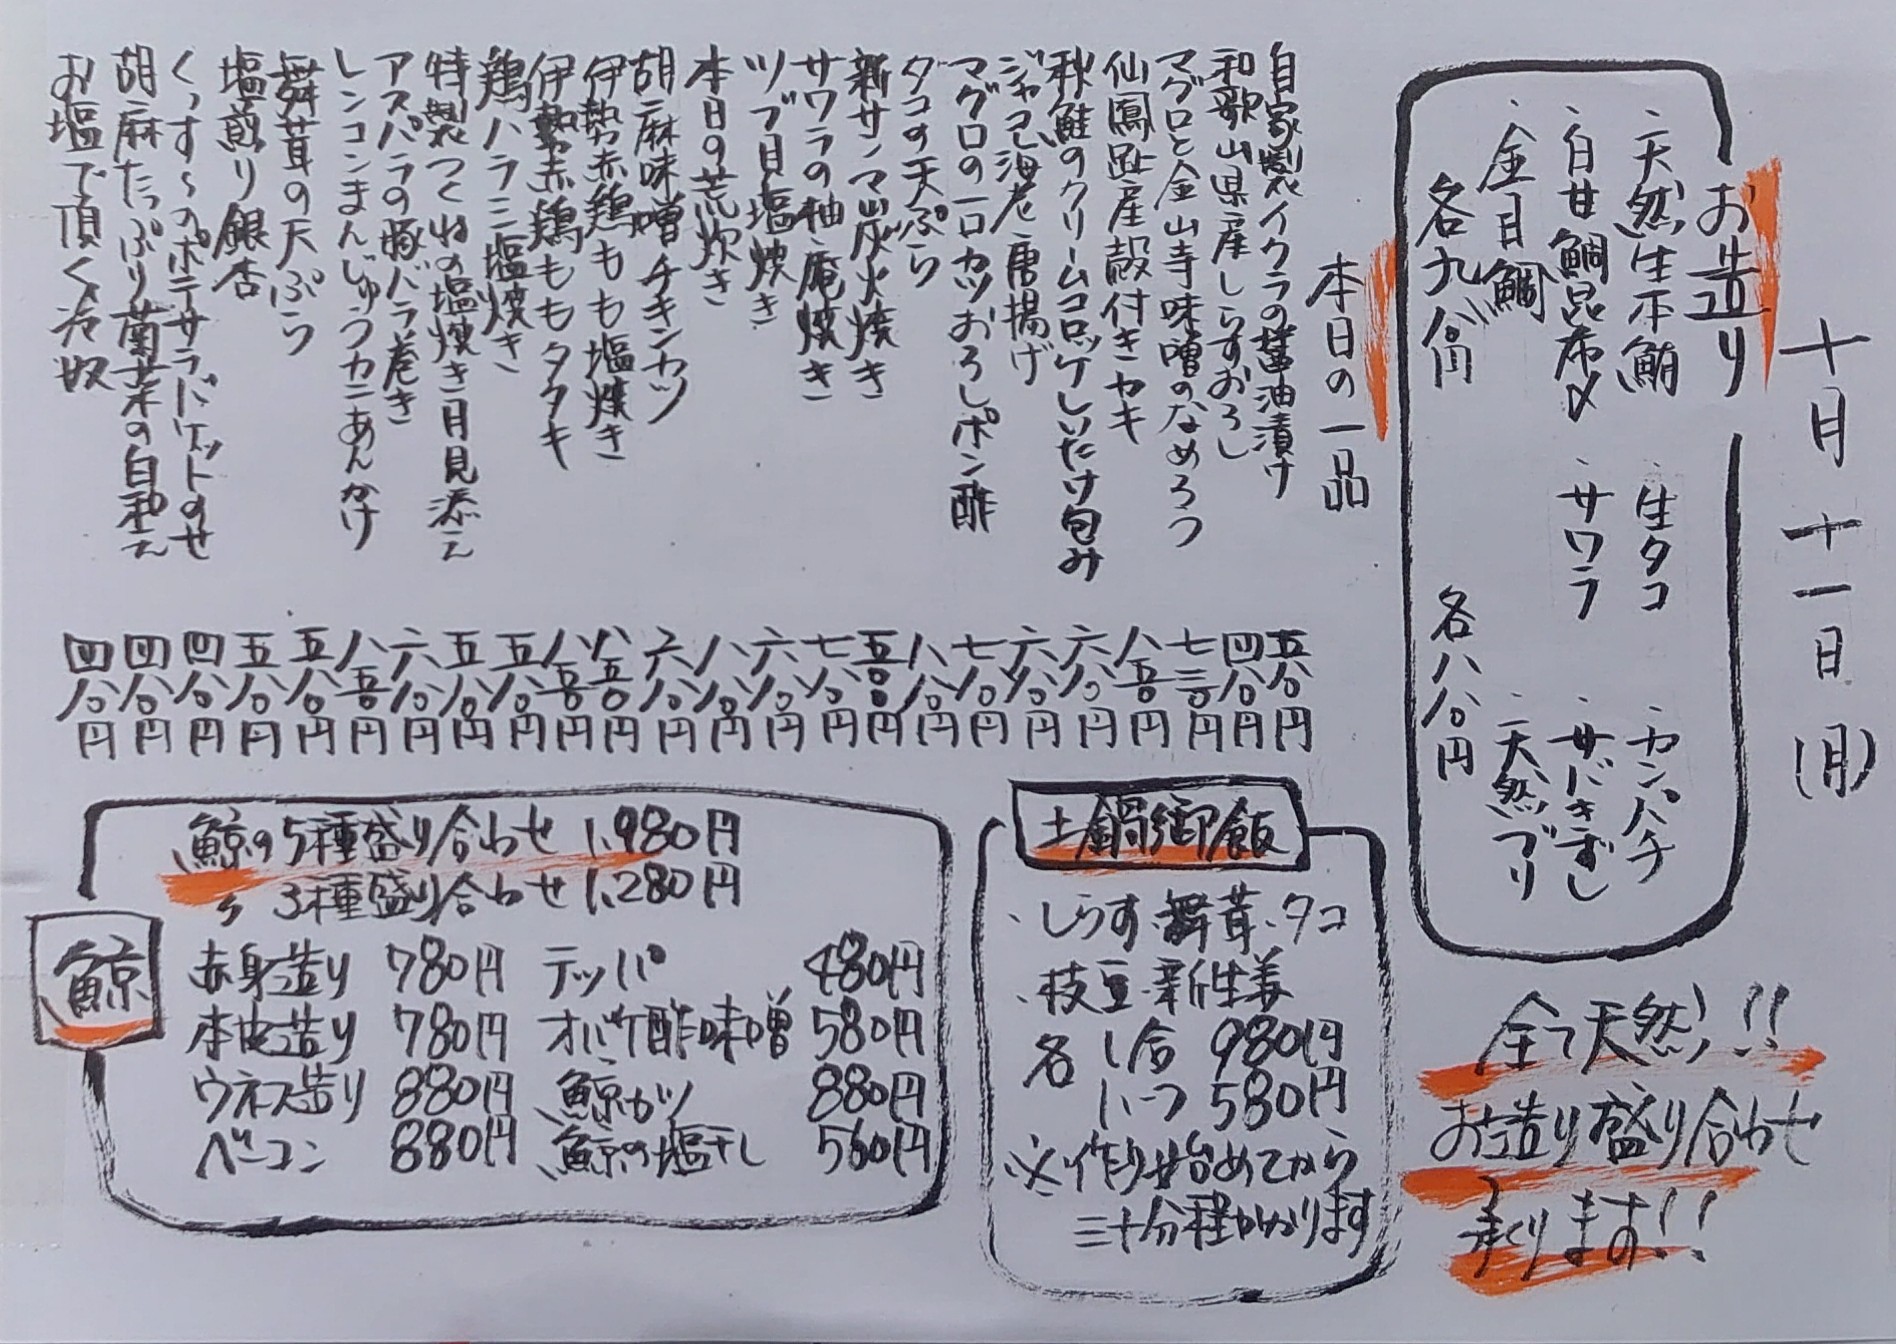 十月十一日(月)
お造り
・天然生本鮪
・白甘鯛昆布〆
・金目鯛
各九八〇円
・生タコ
・サワラ
・カンパチ
・サバきずし
・天然ブリ
各八八〇円
全て天然!!
お造り盛り合わせ
承ります!!
本日の一品
自家製イクラの醤油漬け 五八〇円
和歌山県産しらすおろし 四八〇円
マグロと金山寺味噌のなめろう 七三〇円
仙鳳趾産殻付きカキ 八五〇円
秋鮭のクリームコロッケしいたけ包み 六八〇円
ジャコ海老唐揚げ 六八〇円
マグロの一口カツおろしポン酢 七八〇円
タコの天ぷら 八八〇円
新サンマ炭火焼き 五〇〇円
サワラの柚庵焼き 七八〇円
ツブ貝塩焼き 六八〇円
本日の荒炊き 八八〇円
胡麻味噌チキンカツ 六八〇円
伊勢赤鶏もも塩焼き 八五〇円
伊勢赤鶏ももタタキ 八五〇円
鶏ハラミ塩焼き 五八〇円
特製つくねの塩焼き月見添え 五八〇円
アスパラの豚バラ巻き 六八〇円
レンコンまんじゅうカニあんかけ 八五〇円
舞茸の天ぷら 五八〇円
塩煎り銀杏 五八〇円
くっす〜のポテサラバゲットのせ 四八〇円
胡麻たっぷり菊菜の白和え 四八〇円
お塩で頂く冷奴 四八〇円
土鍋御飯
・しらす・舞茸・タコ
・枝豆・新生姜
各 1合 980円
1/2 580円
※作り始めてから
三十分程かかります
鯨
鯨の5種盛り合わせ 1,980円
〃 3種盛り合わせ 1,280円
赤身造り 780円 テッパ 480円
本皮造り 780円 オバケ酢味噌 580円
ウネス造り 880円 鯨カツ 880円
ベーコン 880円 鯨の塩干し 560円